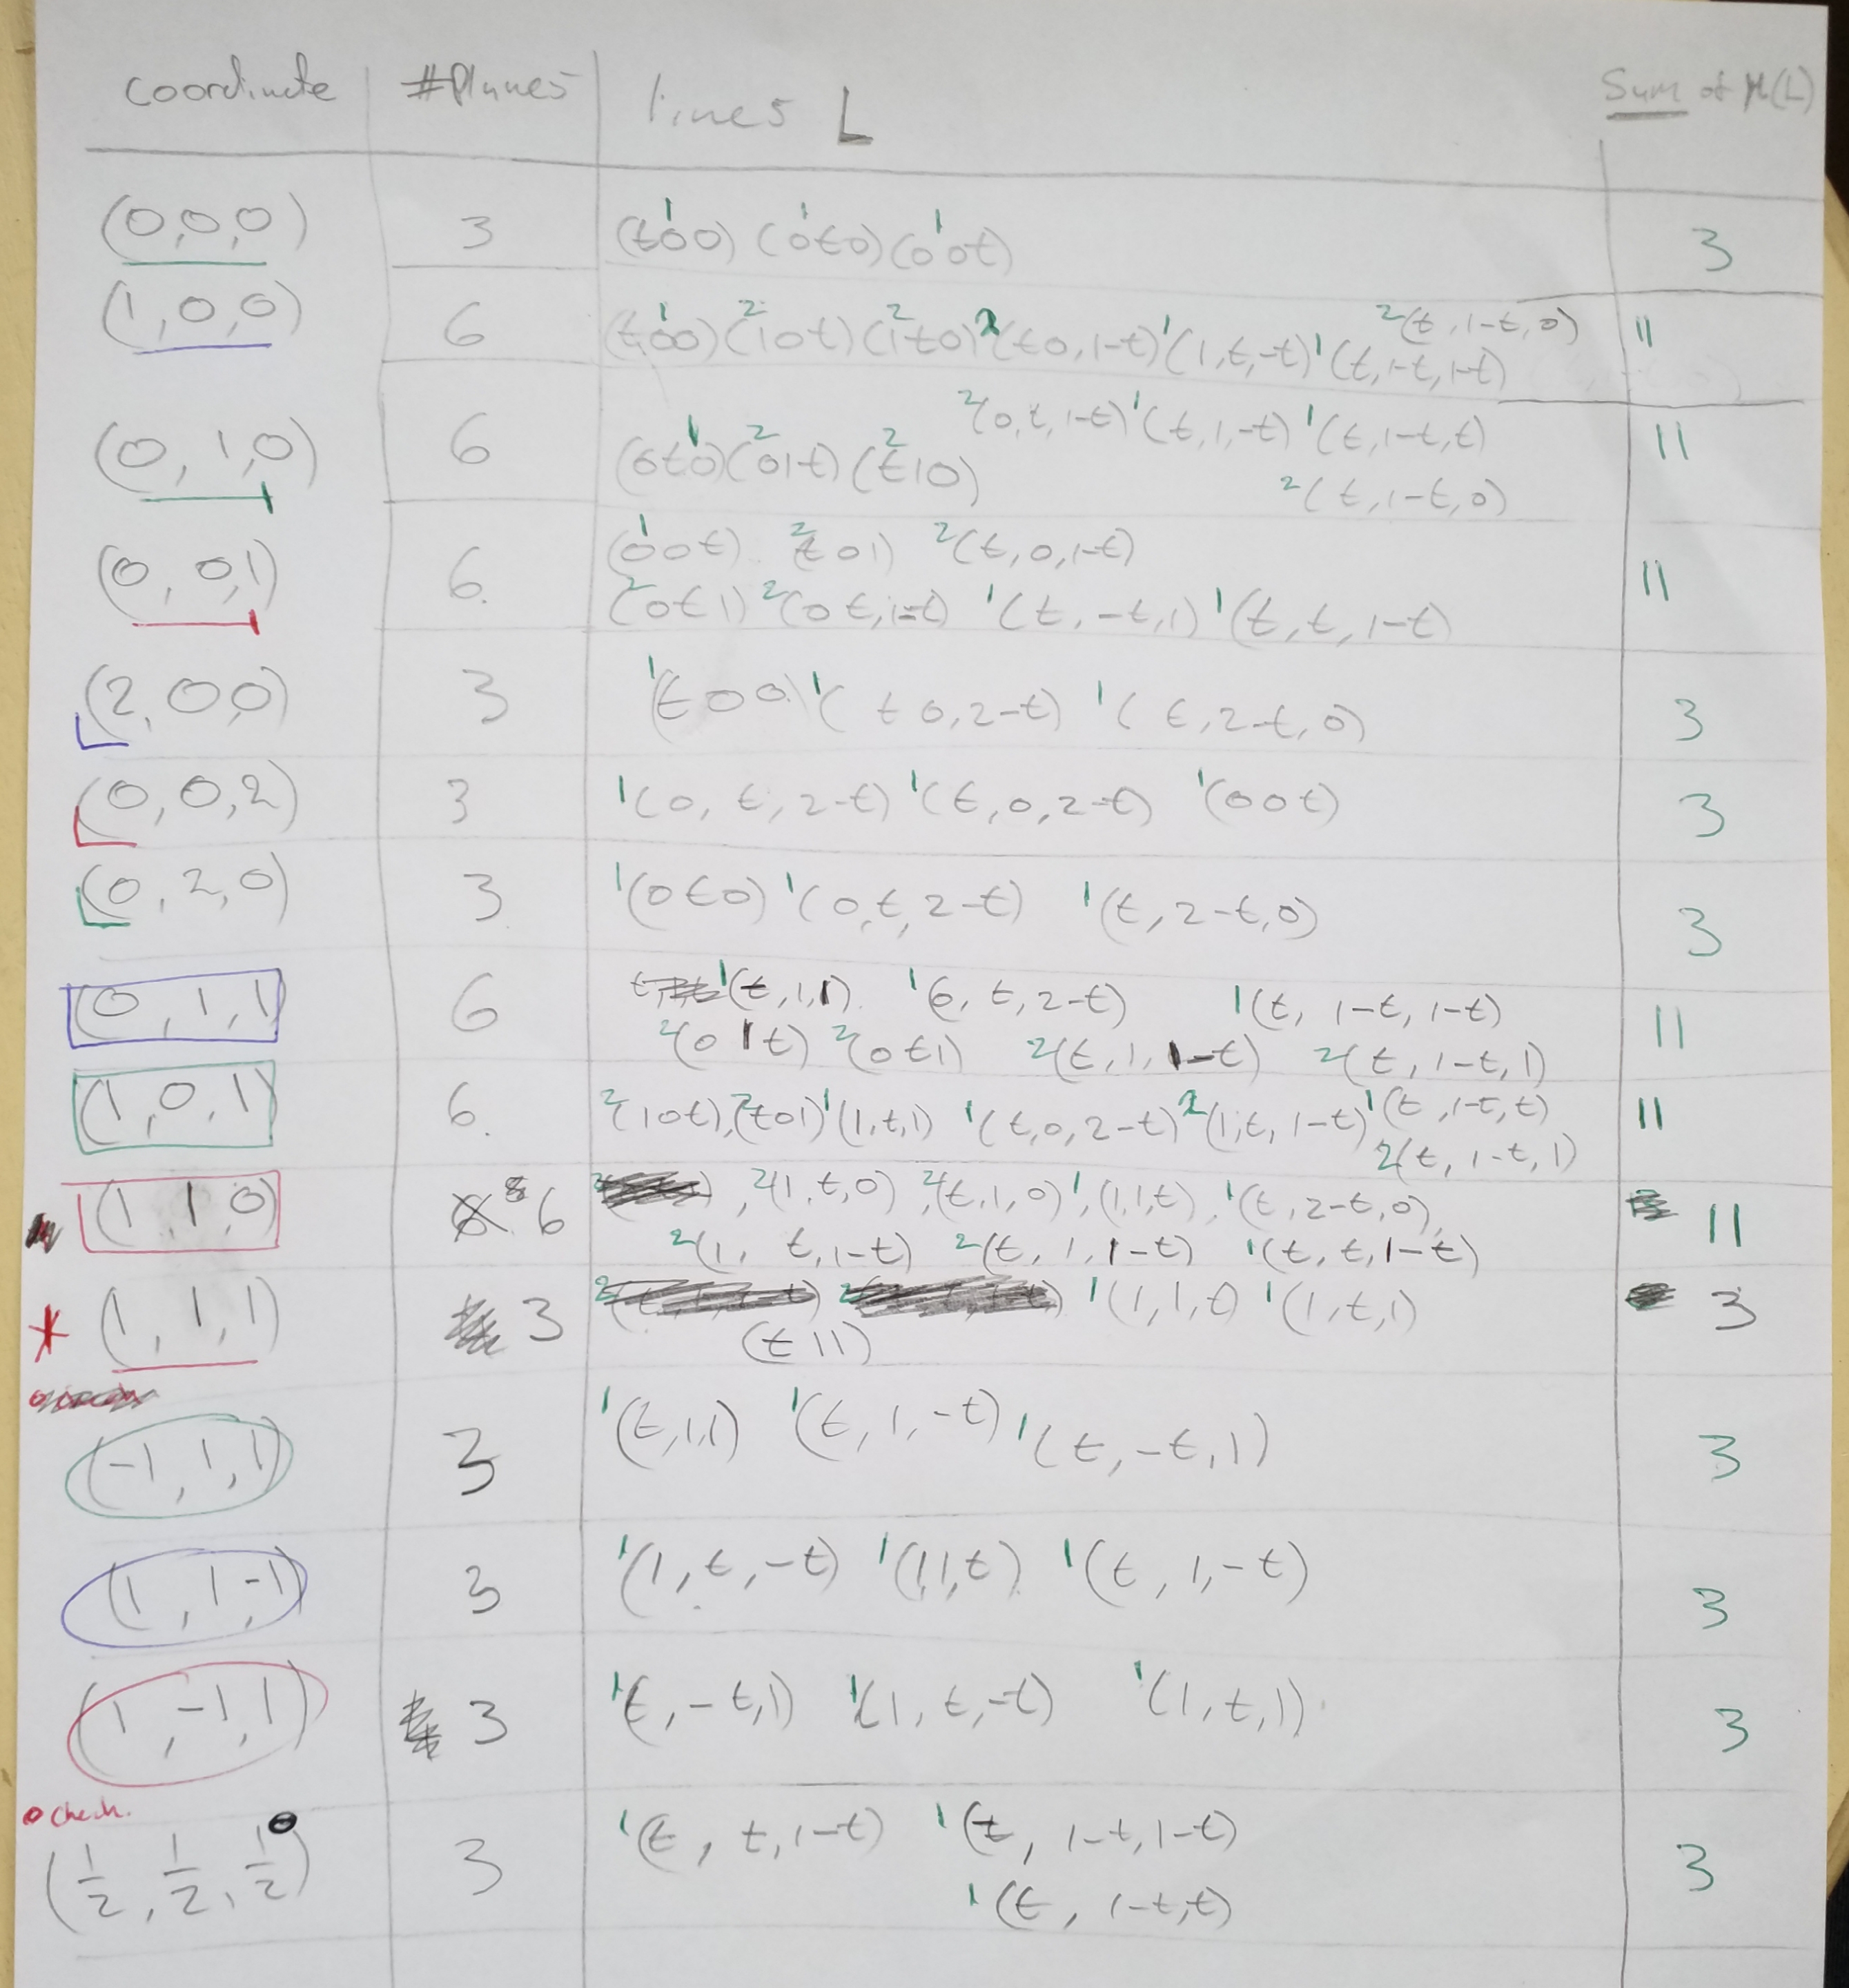 coordinate #Planes lines L Sum of μ(L)
(0,0,0) 3 1(t00) 1(0t0) 1(00t) 3
(1,0,0) 6 1(t,00) 2(10t) 2(1t0) 2(t0,1-t) 1(1,t,-t) 1(t,1-t,1-t) 2(t,1-t,0) 11
(0,1,0) 6 1(0t0) 2(01t) 2(t10) 2(0,t,1-t) 1(t,1,-t) 1(t,1-t,t) 11
2(t,1-t,0)
(0,0,1) 6. 1(00t). 2(t01) 2(t,0,1-t) 11
2(0t1) 2(0t,1-t) 1(t,-t,1) 1(t,t,1-t)
(2,00) 3 1(t00) 1(t0,2-t) 1(t,2-t,0) 3
(0,0,2) 3 1(0,t,2-t) 1(t,0,2-t) 1(00t) 3
(0,2,0) 3. 1(0t0) 1(0,t,2-t) 1(t,2-t,0) 3
(0,1,1) 6 1(t,1,1). 1(0,t,2-t) 1(t,1-t,1-t) 11
2(01t) 2(0t1) 2(t,1,1-t) 2(t,1-t,1)
(1,0,1) 6. 2(10t), 2(t01) 1(1,t,1) 1(t,0,2-t) 2(1,t,1-t) 1(t,1-t,t) 11
2(t,1-t,1)
(1,1,0) 6 , 2(1,t,0) , 2(t,1,0) 1,(1,1,t), 1(t,2-t,0), 11
2(1,t,1-t) 2(t,1,1-t) 1(t,t,1-t)
* (1,1,1) 3 1(1,1,t) 1(1,t,1) 3
(t11)
(-1,1,1) 3 1(t,1,1) 1(t,1,-t) 1(t,-t,1) 3
(1,1-1) 3 1(1,t,-t) 1(1,1,t) 1(t,1,-t) 3
(1,-1,1) 3 1(t,-t,1) 1(1,t,-t) 1(1,t,1). 3
o check.
(1/2,1/2,1/2) 3 1(t,t,1-t) 1(t,1-t,1-t) 3
1(t,1-t,t)